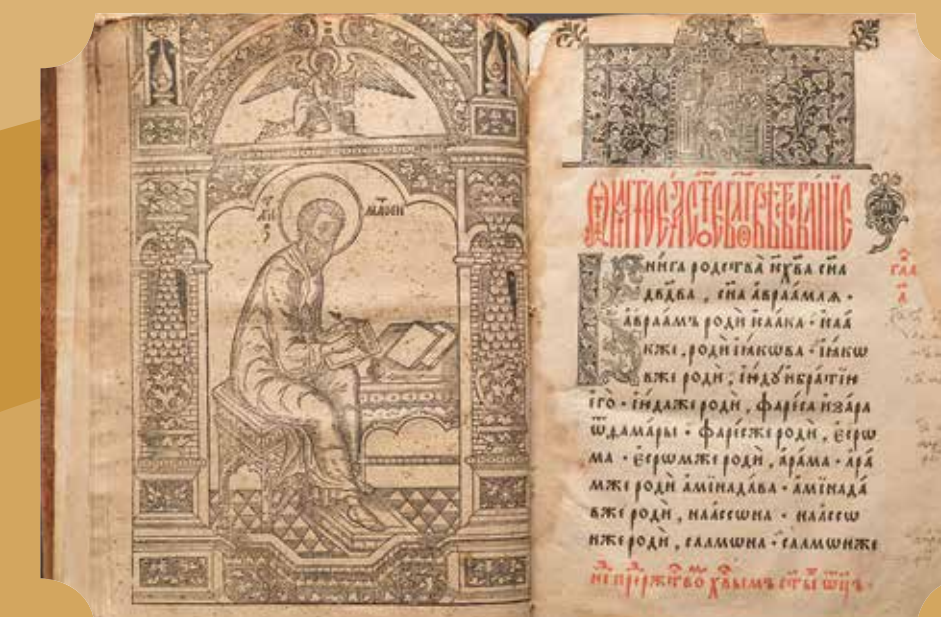 МАТѲЕИ
ѾМАТѲЕѦ СТ҃ОЕ БЛГОВѢСТВОВАНИЕ
Книга родства̀ і҆с҃ хв҃а сн҃а
дв҃два , сн҃а а҆враа́млѧ ·
а҆враа́мъ родѝ і҆саа́ка · і҆саа́
кже , родѝ і҆а́кѡва · і҆а́кѡ
вже родѝ , і҆ю́дꙋ и҆бра́тїю
є҆го̀ · і҆ю́даже родѝ , фаре́са и҆за́ра
ѿѳама́ры · фаре́сже родѝ , є҆сро́
ма · є҆срѡ́мже родѝ , а҆ра́ма · а҆ра́
мже родѝ а҆мїнада́ва · а҆мїнада́
вже родѝ , наассѡ́на · наассѡ́
нже родѝ , салмѡ́на · салмѡ́нже
гла
а҃
не пре́ржⷭ҇тво хв҃ымъ ст҃ы ѿц҃ъ ·